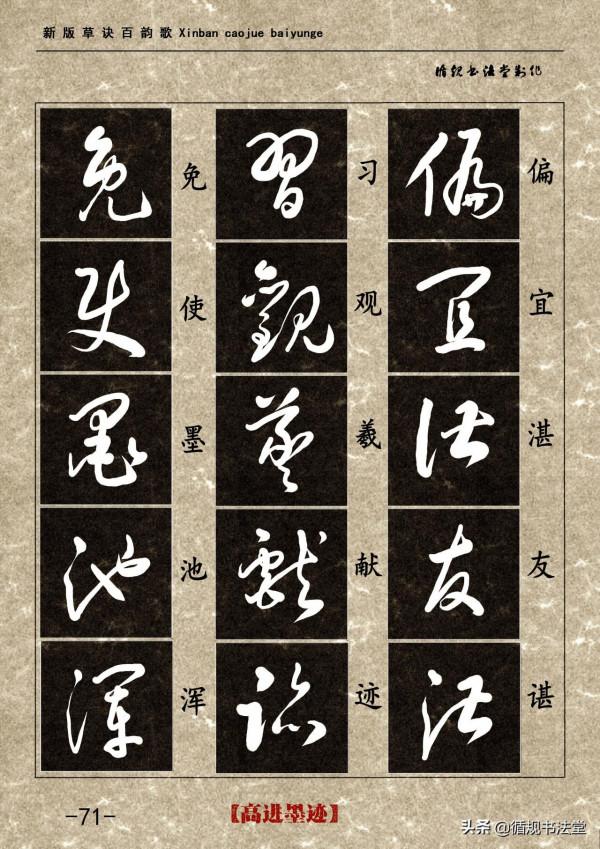 新版草诀百韵歌 Xinban caojue baiyunge
循规书法堂制作
偏宜湛友谌
习观羲献迹
免使墨池浑
-71-
【高进墨迹】
头条 @循规书法堂